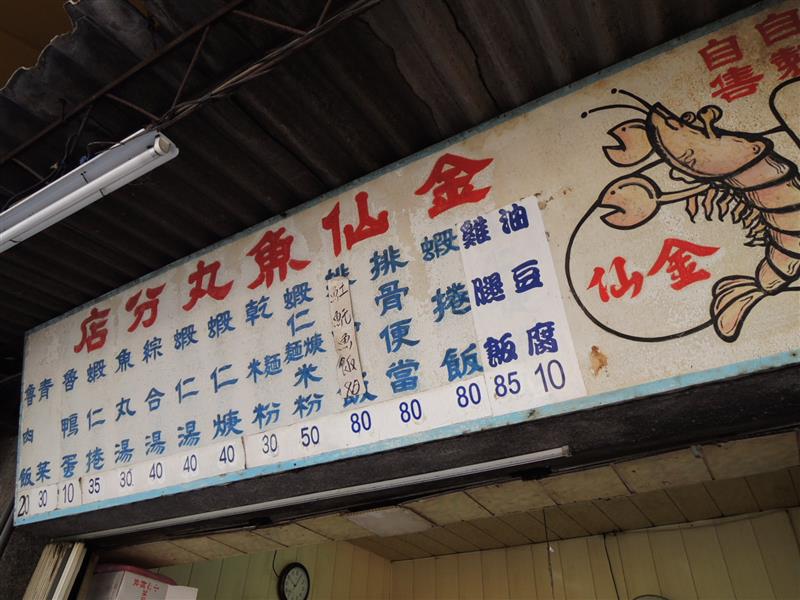 自製
自售
金仙魚丸分店
金仙
油豆腐 10
雞腿飯 85
蝦捲飯 80
排骨便當 80
魚飯
排 飯 80
蝦仁焿麵米粉 50
乾麵米粉 30
蝦仁焿 40
蝦仁湯 40
綜合湯 40
魚丸湯 30
蝦仁捲 35
魯鴨蛋 10
青菜 30
魯肉飯 20